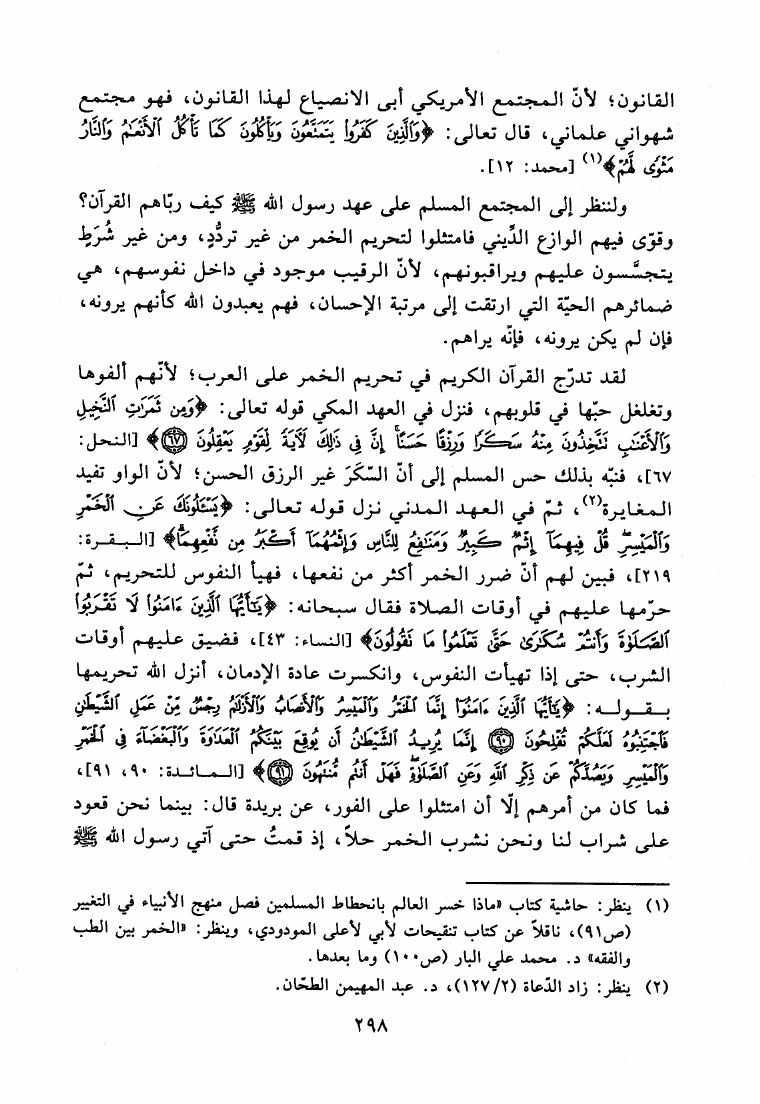 القانون؛ لأنّ المجتمع الأمريكي أبى الانصياع لهذا القانون، فهو مجتمع
شهواني علماني، قال تعالى: ﴿وَٱلَّذِينَ كَفَرُوا۟ يَتَمَتَّعُونَ وَيَأْكُلُونَ كَمَا تَأْكُلُ ٱلْأَنْعَـٰمُ وَٱلنَّارُ
مَثْوًى لَّهُمْ﴾(١) [محمد: ١٢].
ولننظر إلى المجتمع المسلم على عهد رسول الله ﷺ كيف ربّاهم القرآن؟
وقوّى فيهم الوازع الدِّيني فامتثلوا لتحريم الخمر من غير تردُّدٍ، ومن غير شُرَطٍ
يتجسَّسون عليهم ويراقبونهم، لأنّ الرقيب موجود في داخل نفوسهم، هي
ضمائرهم الحيّة التي ارتقت إلى مرتبة الإحسان، فهم يعبدون الله كأنهم يرونه،
فإن لم يكن يرونه، فإنّه يراهم.
لقد تدرّج القرآن الكريم في تحريم الخمر على العرب؛ لأنّهم ألفوها
وتغلغل حبّها في قلوبهم، فنزل في العهد المكي قوله تعالى: ﴿وَمِن ثَمَرَٰتِ ٱلنَّخِيلِ
وَٱلْأَعْنَـٰبِ تَتَّخِذُونَ مِنْهُ سَكَرًا وَرِزْقًا حَسَنًا ۗ إِنَّ فِى ذَٰلِكَ لَـَٔايَةً لِّقَوْمٍ يَعْقِلُونَ ٦٧﴾ [النحل:
٦٧]، فنبّه بذلك حس المسلم إلى أنّ السّكَرَ غير الرزق الحسن؛ لأنّ الواو تفيد
المغايرة(٢)، ثمّ في العهد المدني نزل قوله تعالى: ﴿يَسْـَٔلُونَكَ عَنِ ٱلْخَمْرِ
وَٱلْمَيْسِرِ ۖ قُلْ فِيهِمَآ إِثْمٌ كَبِيرٌ وَمَنَـٰفِعُ لِلنَّاسِ وَإِثْمُهُمَآ أَكْبَرُ مِن نَّفْعِهِمَا ۗ﴾ [البقرة:
٢١٩]، فبين لهم أنّ ضرر الخمر أكثر من نفعها، فهيأ النفوس للتحريم، ثمّ
حرّمها عليهم في أوقات الصلاة فقال سبحانه: ﴿يَـٰٓأَيُّهَا ٱلَّذِينَ ءَامَنُوا۟ لَا تَقْرَبُوا۟
ٱلصَّلَوٰةَ وَأَنتُمْ سُكَـٰرَىٰ حَتَّىٰ تَعْلَمُوا۟ مَا تَقُولُونَ﴾ [النساء: ٤٣]، فضيق عليهم أوقات
الشرب، حتى إذا تهيأت النفوس، وانكسرت عادة الإدمان، أنزل الله تحريمها
بقوله: ﴿يَـٰٓأَيُّهَا ٱلَّذِينَ ءَامَنُوٓا۟ إِنَّمَا ٱلْخَمْرُ وَٱلْمَيْسِرُ وَٱلْأَنصَابُ وَٱلْأَزْلَـٰمُ رِجْسٌ مِّنْ عَمَلِ ٱلشَّيْطَـٰنِ
فَٱجْتَنِبُوهُ لَعَلَّكُمْ تُفْلِحُونَ ٩٠ إِنَّمَا يُرِيدُ ٱلشَّيْطَـٰنُ أَن يُوقِعَ بَيْنَكُمُ ٱلْعَدَٰوَةَ وَٱلْبَغْضَآءَ فِى ٱلْخَمْرِ
وَٱلْمَيْسِرِ وَيَصُدَّكُمْ عَن ذِكْرِ ٱللَّهِ وَعَنِ ٱلصَّلَوٰةِ ۖ فَهَلْ أَنتُم مُّنتَهُونَ ٩١﴾ [المائدة: ٩٠، ٩١]،
فما كان من أمرهم إلّا أن امتثلوا على الفور، عن بريدة قال: بينما نحن قعود
على شراب لنا ونحن نشرب الخمر حلاً، إذ قمتُ حتى آتي رسول الله ﷺ
(١) ينظر: حاشية كتاب «ماذا خسر العالم بانحطاط المسلمين فصل منهج الأنبياء في التغيير
(ص٩١)، ناقلاً عن كتاب تنقيحات لأبي لأعلى المودودي، وينظر: «الخمر بين الطب
والفقه» د. محمد علي البار (ص١٠٠) وما بعدها.
(٢) ينظر: زاد الدّعاة (٢/ ١٢٧)، د. عبد المهيمن الطحّان.
٢٩٨